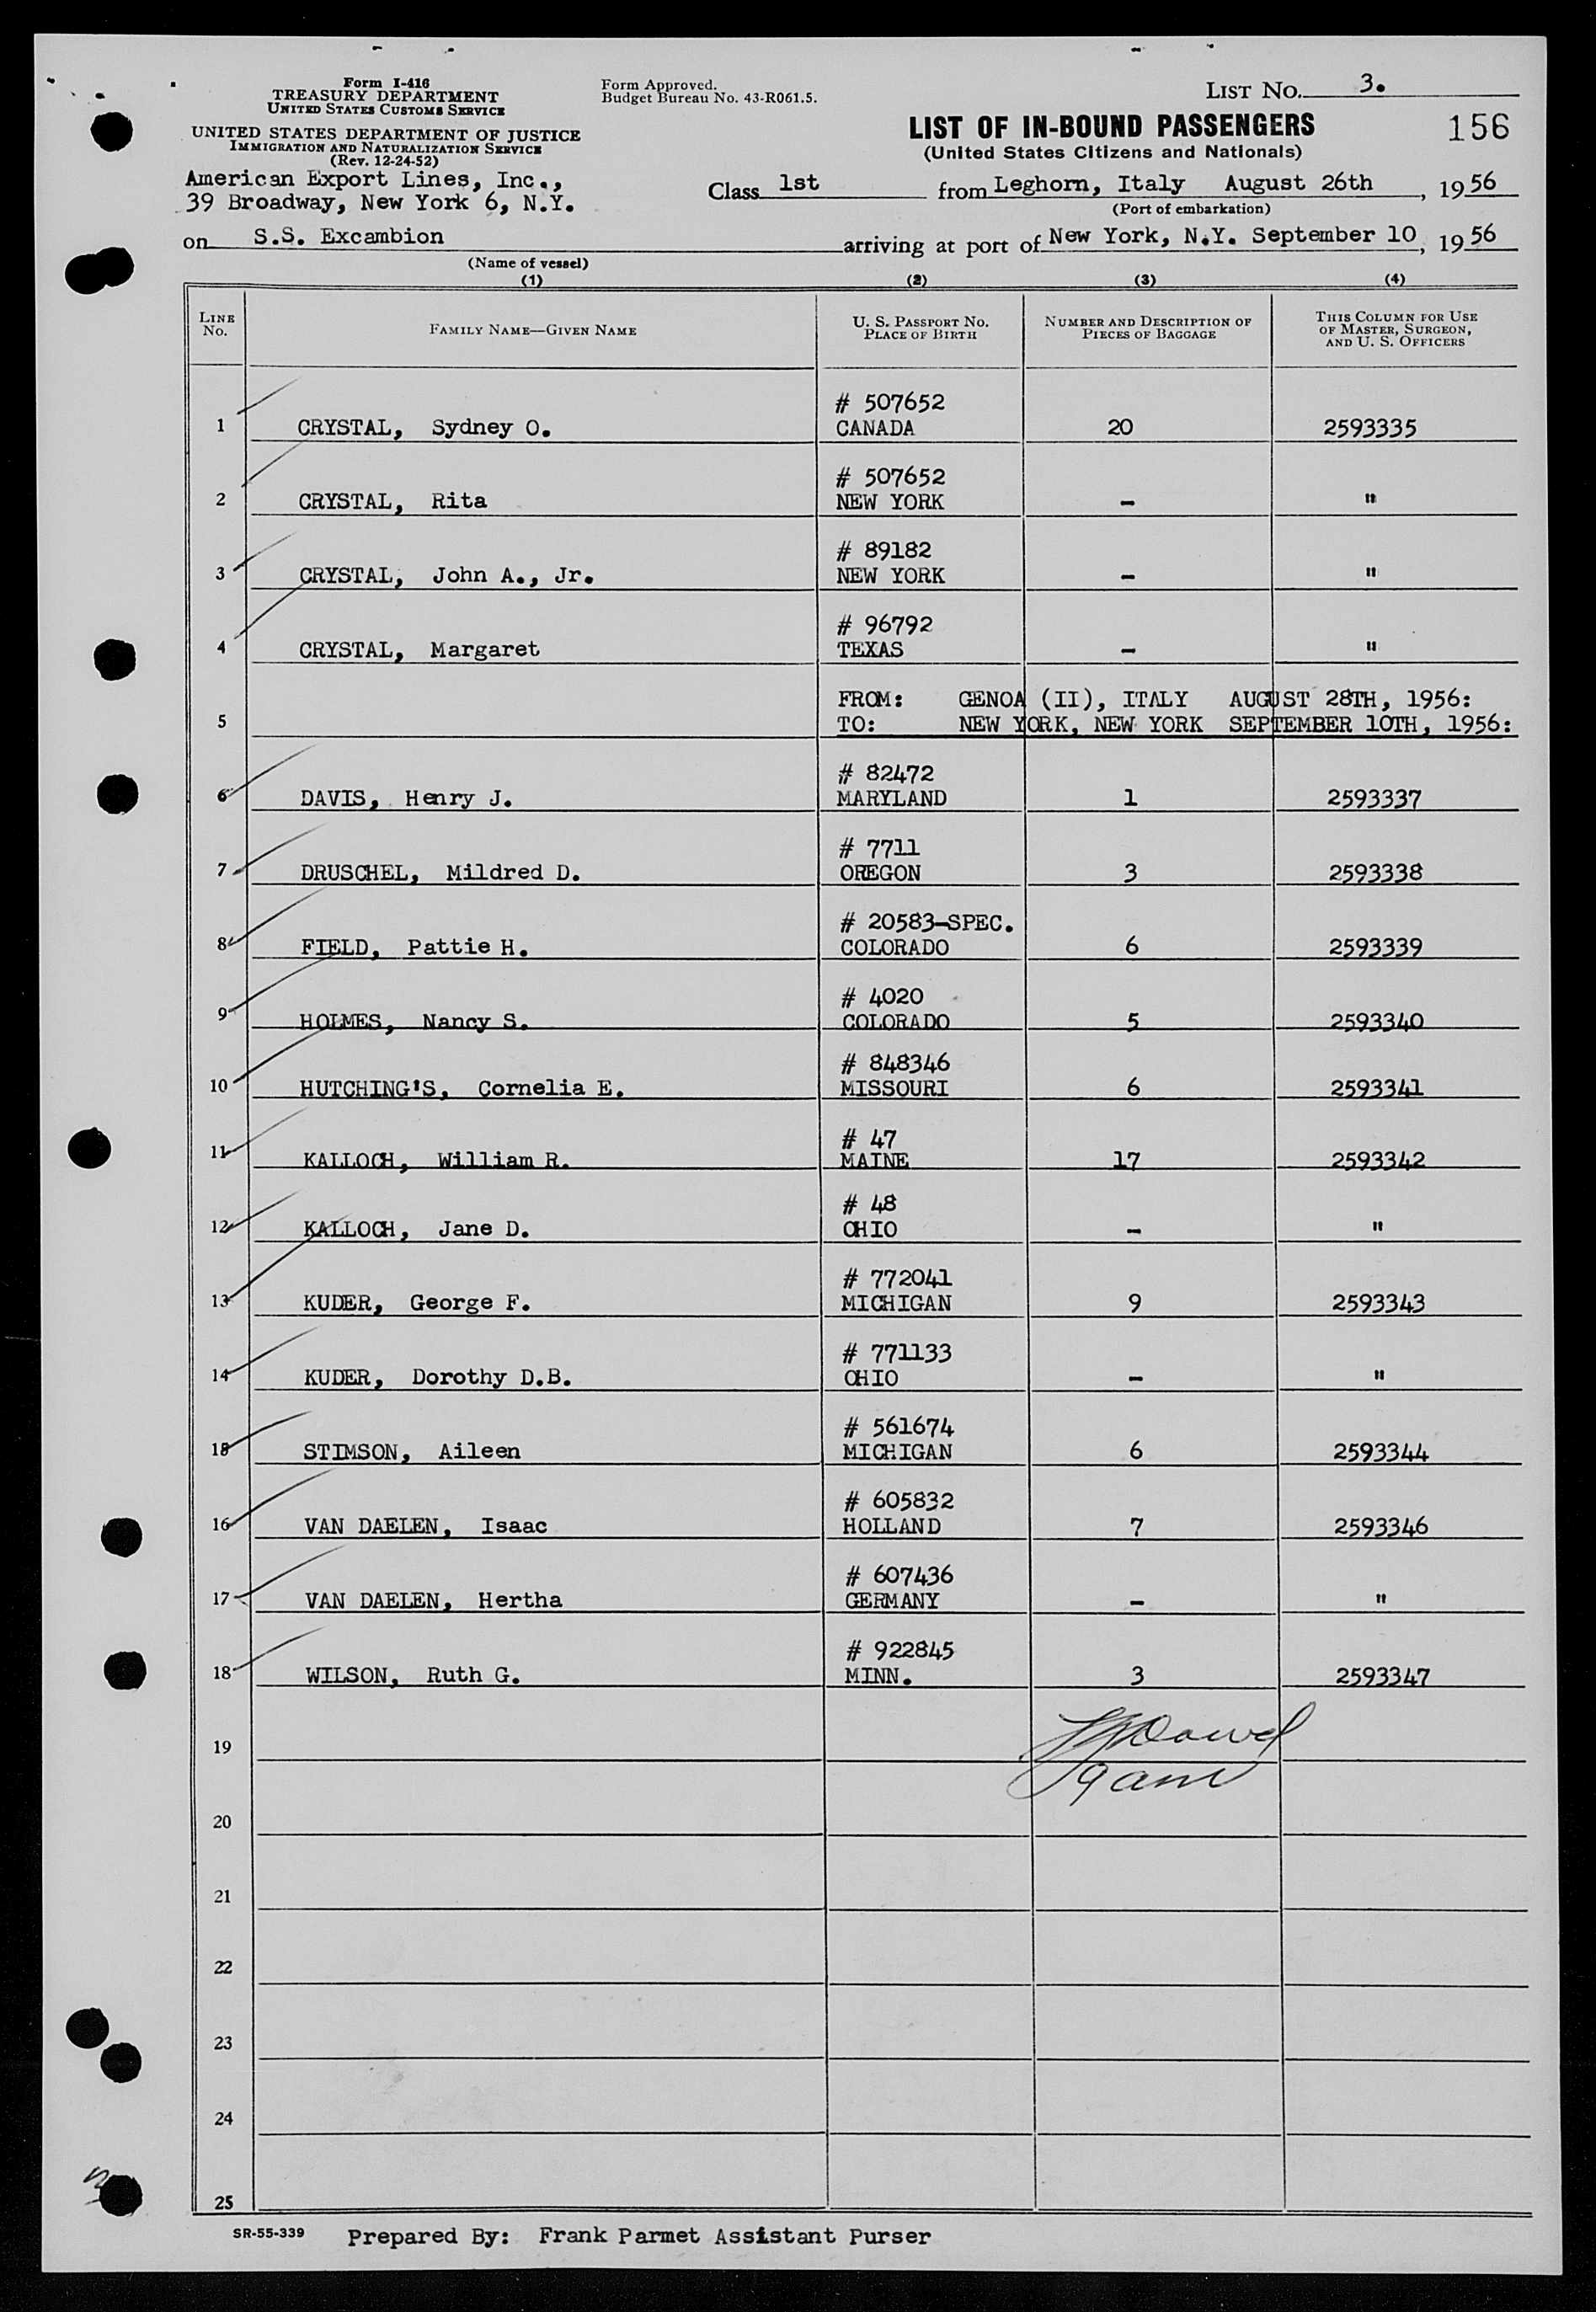 Form I-416
TREASURY DEPARTMENT
UNITED STATES CUSTOMS SERVICE
UNITED STATES DEPARTMENT OF JUSTICE
IMMIGRATION AND NATURALIZATION SERVICE
(Rev. 12-24-52)
Form Approved.
Budget Bureau No. 43-R061.5.
LIST NO. 3.
LIST OF IN-BOUND PASSENGERS
156
(United States Citizens and Nationals)
American Export Lines, Inc.,
39 Broadway, New York 6, N.Y.
Class 1st from Leghorn, Italy August 26th, 1956
(Port of embarkation)
on S.S. Excambion arriving at port of New York, N.Y. September 10, 1956
(Name of vessel)
(1) (2) (3) (4)
LINE No. FAMILY NAME—GIVEN NAME U. S. PASSPORT NO. PLACE OF BIRTH NUMBER AND DESCRIPTION OF PIECES OF BAGGAGE THIS COLUMN FOR USE OF MASTER, SURGEON, AND U. S. OFFICERS
# 507652
1 CRYSTAL, Sydney O. CANADA 20 2593335
# 507652
2 CRYSTAL, Rita NEW YORK - "
# 89182
3 CRYSTAL, John A., Jr. NEW YORK - "
# 96792
4 CRYSTAL, Margaret TEXAS - "
FROM: GENOA (II), ITALY AUGUST 28TH, 1956:
5 TO: NEW YORK, NEW YORK SEPTEMBER 10TH, 1956:
# 82472
6 DAVIS, Henry J. MARYLAND 1 2593337
# 7711
7 DRUSCHEL, Mildred D. OREGON 3 2593338
# 20583-SPEC.
8 FIELD, Pattie H. COLORADO 6 2593339
# 4020
9 HOLMES, Nancy S. COLORADO 5 2593340
# 848346
10 HUTCHING'S, Cornelia E. MISSOURI 6 2593341
# 47
11 KALLOCH, William R. MAINE 17 2593342
# 48
12 KALLOCH, Jane D. OHIO - "
# 772041
13 KUDER, George F. MICHIGAN 9 2593343
# 771133
14 KUDER, Dorothy D.B. OHIO - "
# 561674
15 STIMSON, Aileen MICHIGAN 6 2593344
# 605832
16 VAN DAELEN, Isaac HOLLAND 7 2593346
# 607436
17 VAN DAELEN, Hertha GERMANY - "
# 922845
18 WILSON, Ruth G. MINN. 3 2593347
19
20
21
22
23
24
25
SR-55-339 Prepared By: Frank Parmet Assistant Purser